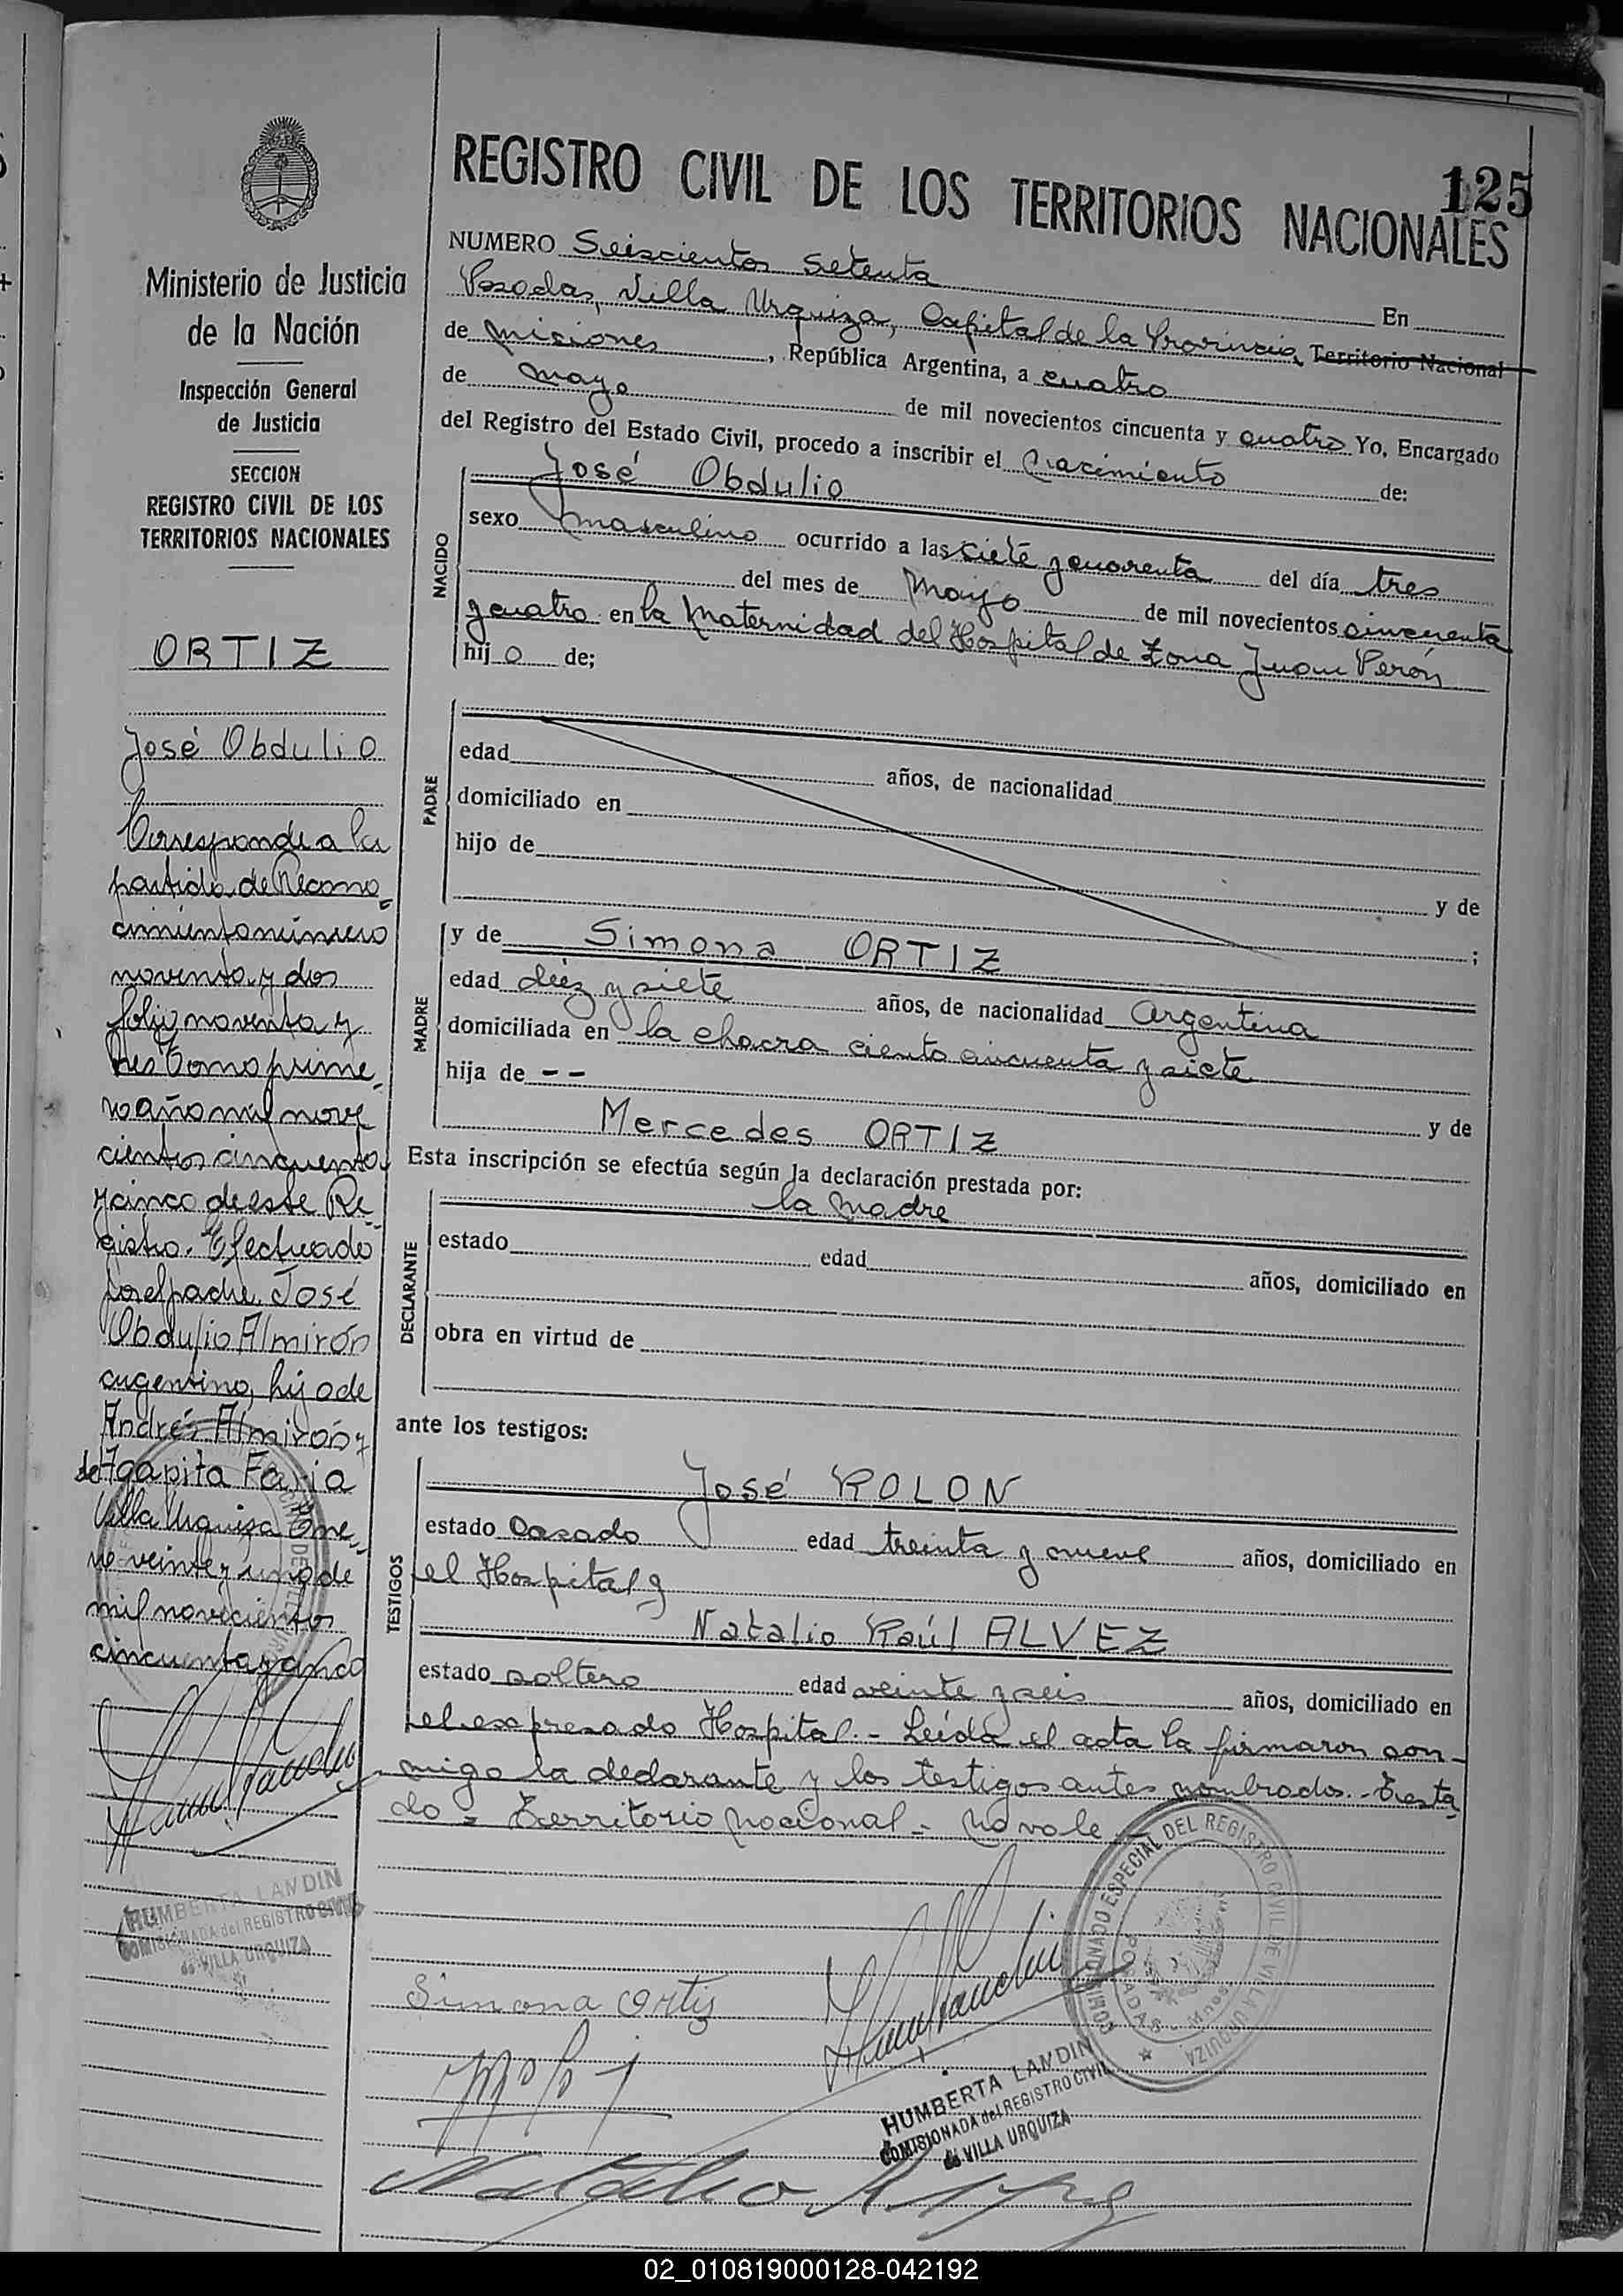 125
REGISTRO CIVIL DE LOS TERRITORIOS NACIONALES
Ministerio de Justicia
de la Nación
Inspección General
de Justicia
SECCION
REGISTRO CIVIL DE LOS
TERRITORIOS NACIONALES
ORTIZ
José Obdulio
Corresponde a la
partida de Recono-
cimiento número
noventa y dos
folio noventa y
tres Tomo prime-
ro año mil nove
cientos cincuenta
y cinco de este Re-
gistro. Efectuado
por el padre José
Obdulio Almirón
argentino, hijo de
Andrés Almirón y
de Agapita Faria
Villa Urquiza Ene-
ro veinte y uno de
mil novecientos
cincuenta y cinco
HUMBERTA LANDIN
COMISIONADA del REGISTRO CIVIL
de VILLA URQUIZA
NUMERO Seiscientos setenta En
Posadas, Villa Urquiza, Capital de la Provincia, Territorio Nacional
de Misiones, República Argentina, a cuatro
de mayo de mil novecientos cincuenta y cuatro Yo, Encargado
del Registro del Estado Civil, procedo a inscribir el Nacimiento de:
NACIDO
José Obdulio
sexo masculino ocurrido a las siete y cuarenta del día tres
del mes de Mayo de mil novecientos cincuenta
y cuatro en la Maternidad del Hospital de Zona Juan Perón
hijo de;
PADRE
edad años, de nacionalidad
domiciliado en
hijo de
y de
;
MADRE
y de Simona ORTIZ
edad diez y siete años, de nacionalidad Argentina
domiciliada en la chacra ciento cincuenta y siete
hija de -- y de
Mercedes ORTIZ
Esta inscripción se efectúa según la declaración prestada por:
DECLARANTE
la Madre
estado edad años, domiciliado en
obra en virtud de
ante los testigos:
TESTIGOS
José ROLON
estado Casado edad treinta y nueve años, domiciliado en
el Hospital y
Natalio Raúl ALVEZ
estado soltero edad veinte y seis años, domiciliado en
el expresado Hospital.- Leída el acta la firmaron con-
migo la declarante y los testigos antes nombrados.- Testa-
do = Territorio Nacional - No vale
COMISIONADO ESPECIAL DEL REGISTRO CIVIL DE VILLA URQUIZA
POSADAS - Misiones
Simona Ortiz
HUMBERTA LANDIN
COMISIONADA del REGISTRO CIVIL
de VILLA URQUIZA
Natalio
02_010819000128-042192